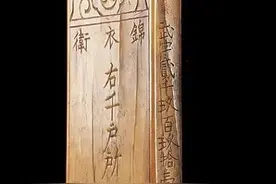 錦衣衛
右千戶所
貳千玖百拾